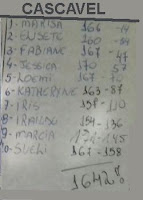 CASCAVEL
1- MARISA 166 -
2- ELISETE 160 -
3- FABIANE 167 - 47
4- JESSICA 170 57
5- NOEMI 167 -
6- KATHERYNE 163-87
7- IRIS 158-110
8- IRAILDU 154-136
9- MARCIA
0- SUELI 167-158
1642